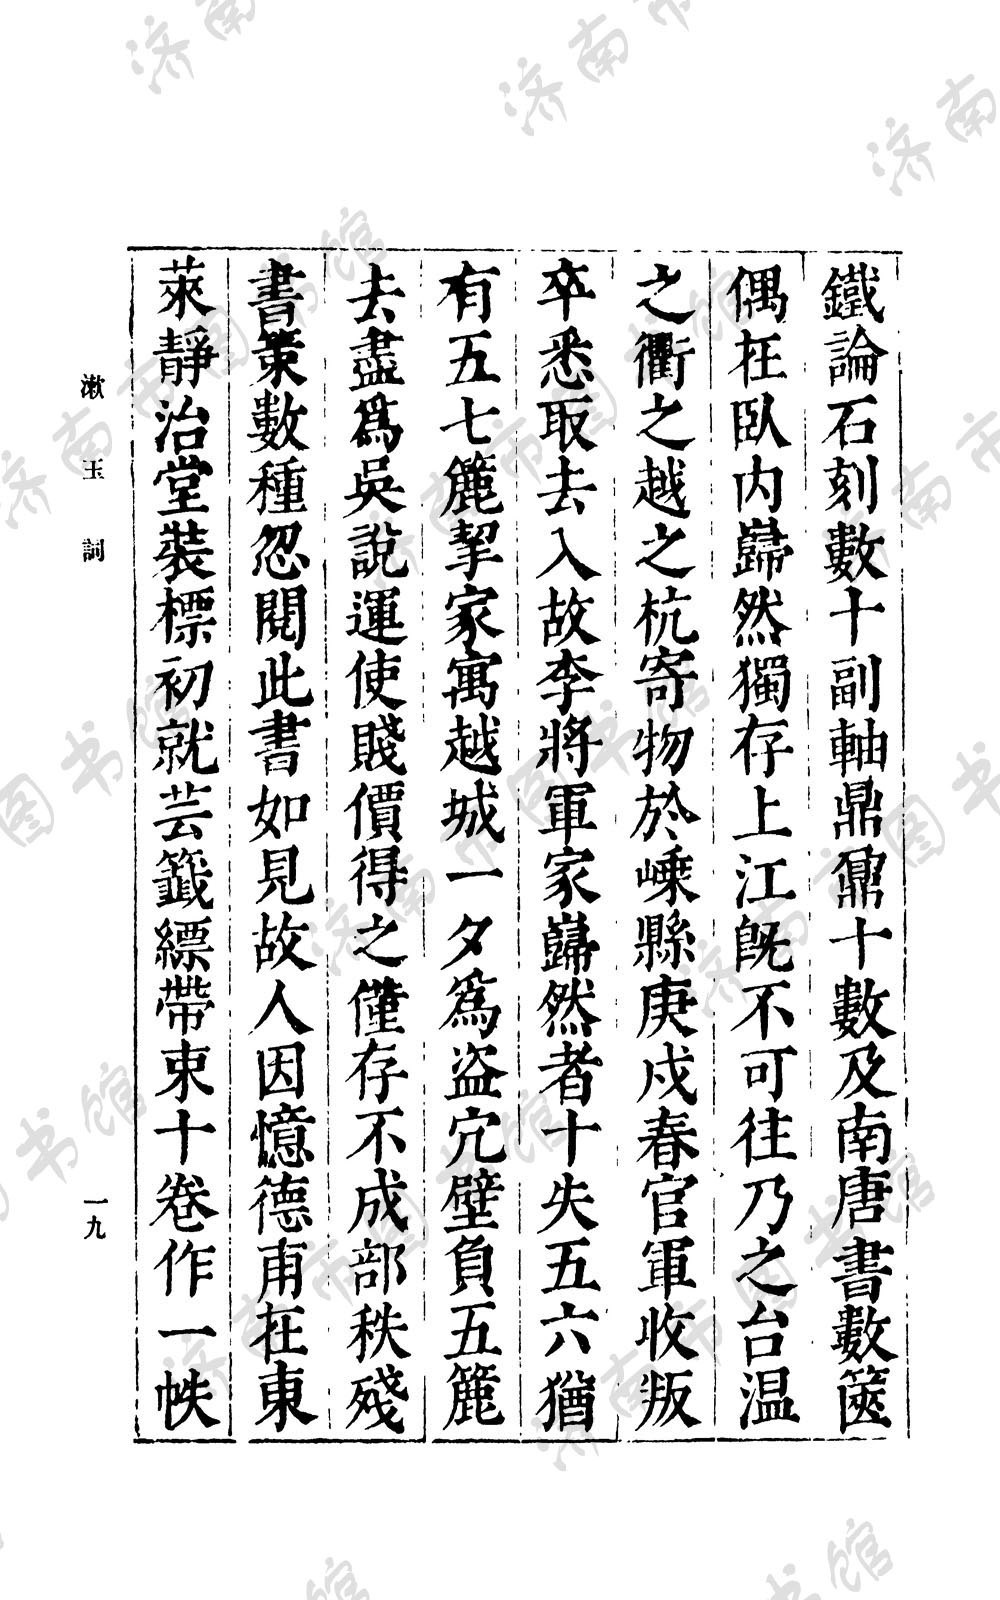 鐵論石刻數十副軸鼎鼐十數及南唐書數篋
偶在臥内巋然獨存上江既不可往乃之台温
之衢之越之杭寄物於嵊縣庚戍春官軍收叛
卒悉取去入故李將軍家巋然者十失五六猶
有五七簏挈家寓越城一夕爲盗穴壁負五簏
去盡爲吳說運使賤價得之僅存不成部秩殘
書策數種忽閱此書如見故人因憶德甫在東
萊靜治堂裝標初就芸籤縹帶束十卷作一帙
漱玉詞
一九
济南市图书馆